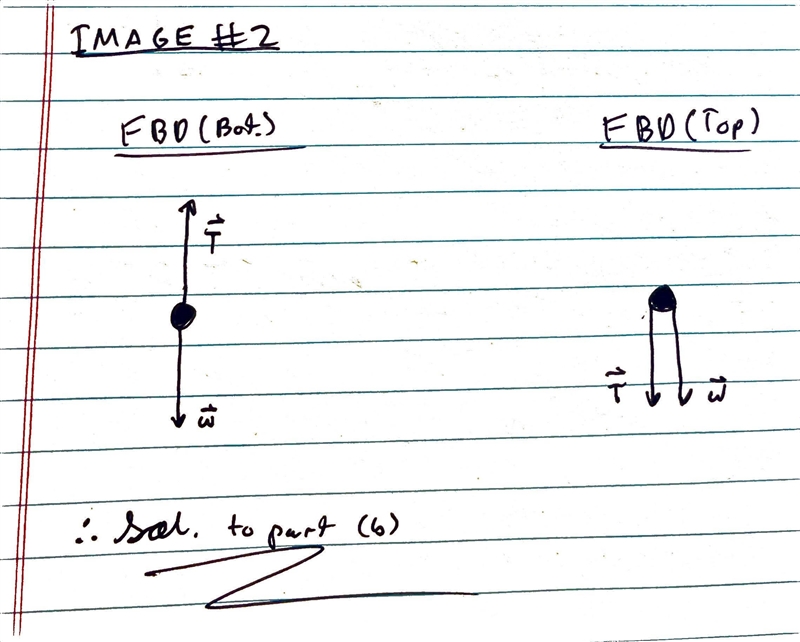 IMAGE #2
FBD (Bot.)
FBD (Top)
T
w
T
w
∴ Sol. to part (b)